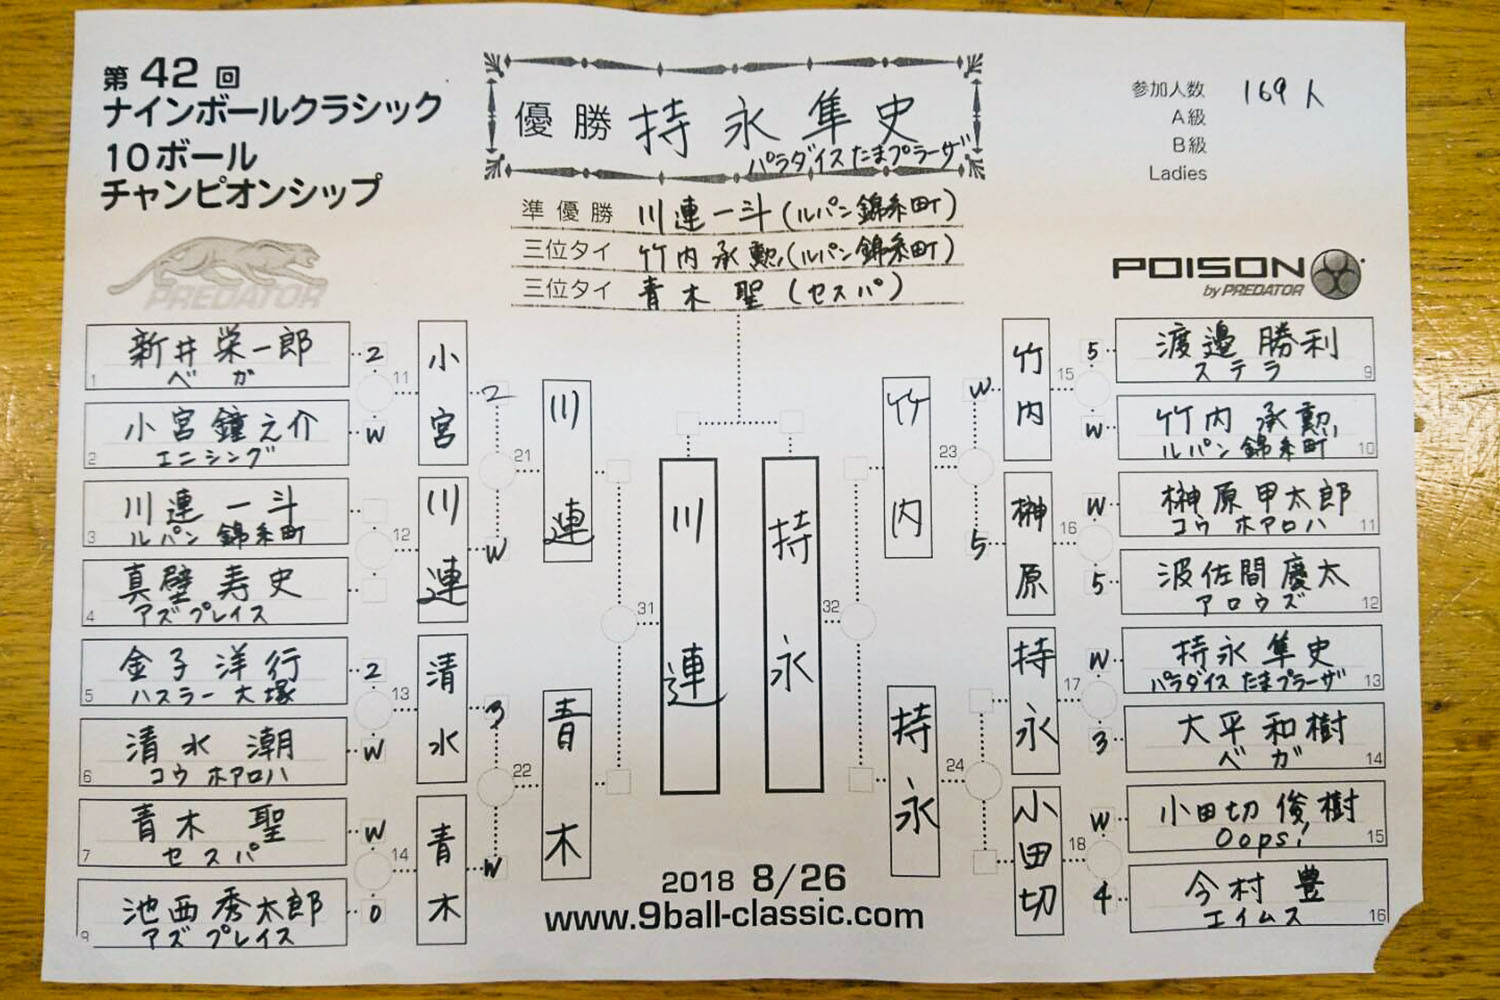 第42回
ナインボールクラシック
10ボール
チャンピオンシップ
優勝 持永隼史
パラダイス たまプラーザ
準優勝 川連一斗(ルパン錦糸町)
三位タイ 竹内承勲(ルパン錦糸町)
三位タイ 青木聖(セスパ)
参加人数 169人
A級
B級
Ladies
PREDATOR
POISON
by PREDATOR
新井栄一郎
ベガ
1
2
小宮鐘之介
エニシング
2
W
川連一斗
ルパン錦糸町
3
真壁寿史
アズプレイス
4
金子洋行
ハスラー大塚
5
2
清水潮
コウホアロハ
6
W
青木聖
セスパ
7
W
池西秀太郎
アズプレイス
0
11
小宮
2
12
川連
W
13
清水
3
14
青木
W
21
川連
22
青木
31
川連
持永
32
竹内
23
持永
24
竹内
W
15
榊原
5
16
持永
17
小田切
18
5
渡邉勝利
ステラ
9
W
竹内承勲
ルパン錦糸町
10
W
榊原甲太郎
コウホアロハ
11
5
波佐間慶太
アロウズ
12
W
持永隼史
パラダイス たまプラーザ
13
3
大平和樹
ベガ
14
W
小田切俊樹
Oops!
15
4
今村豊
エイムス
16
2018 8/26
www.9ball-classic.com